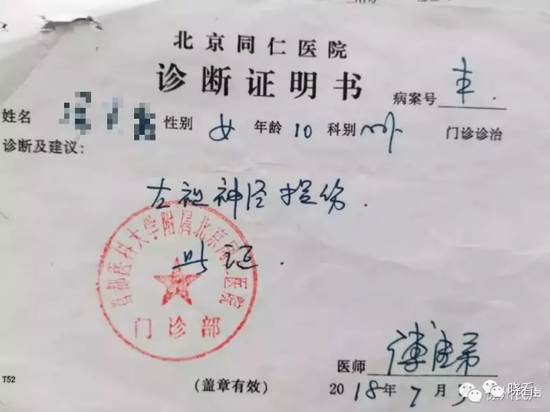 北京同仁医院
诊断证明书
病案号
姓名 性别 女 年龄 10 科别 门诊诊治
诊断及建议：
左视神经损伤.
此证.
首都医科大学附属北京同仁医院
门诊部
医师
T52
(盖章有效)
2018年7月